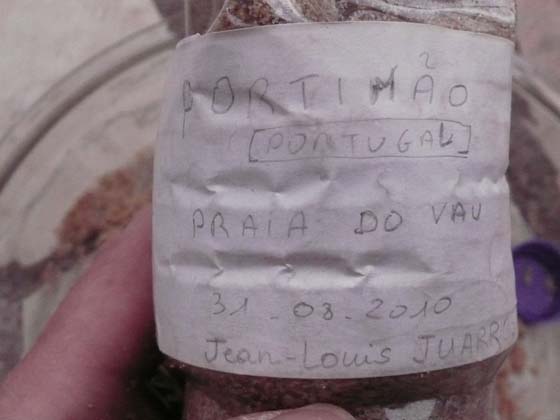 PORTIMÃO
[PORTUGAL]
PRAIA DO VAU
31-08-2010
Jean-Louis